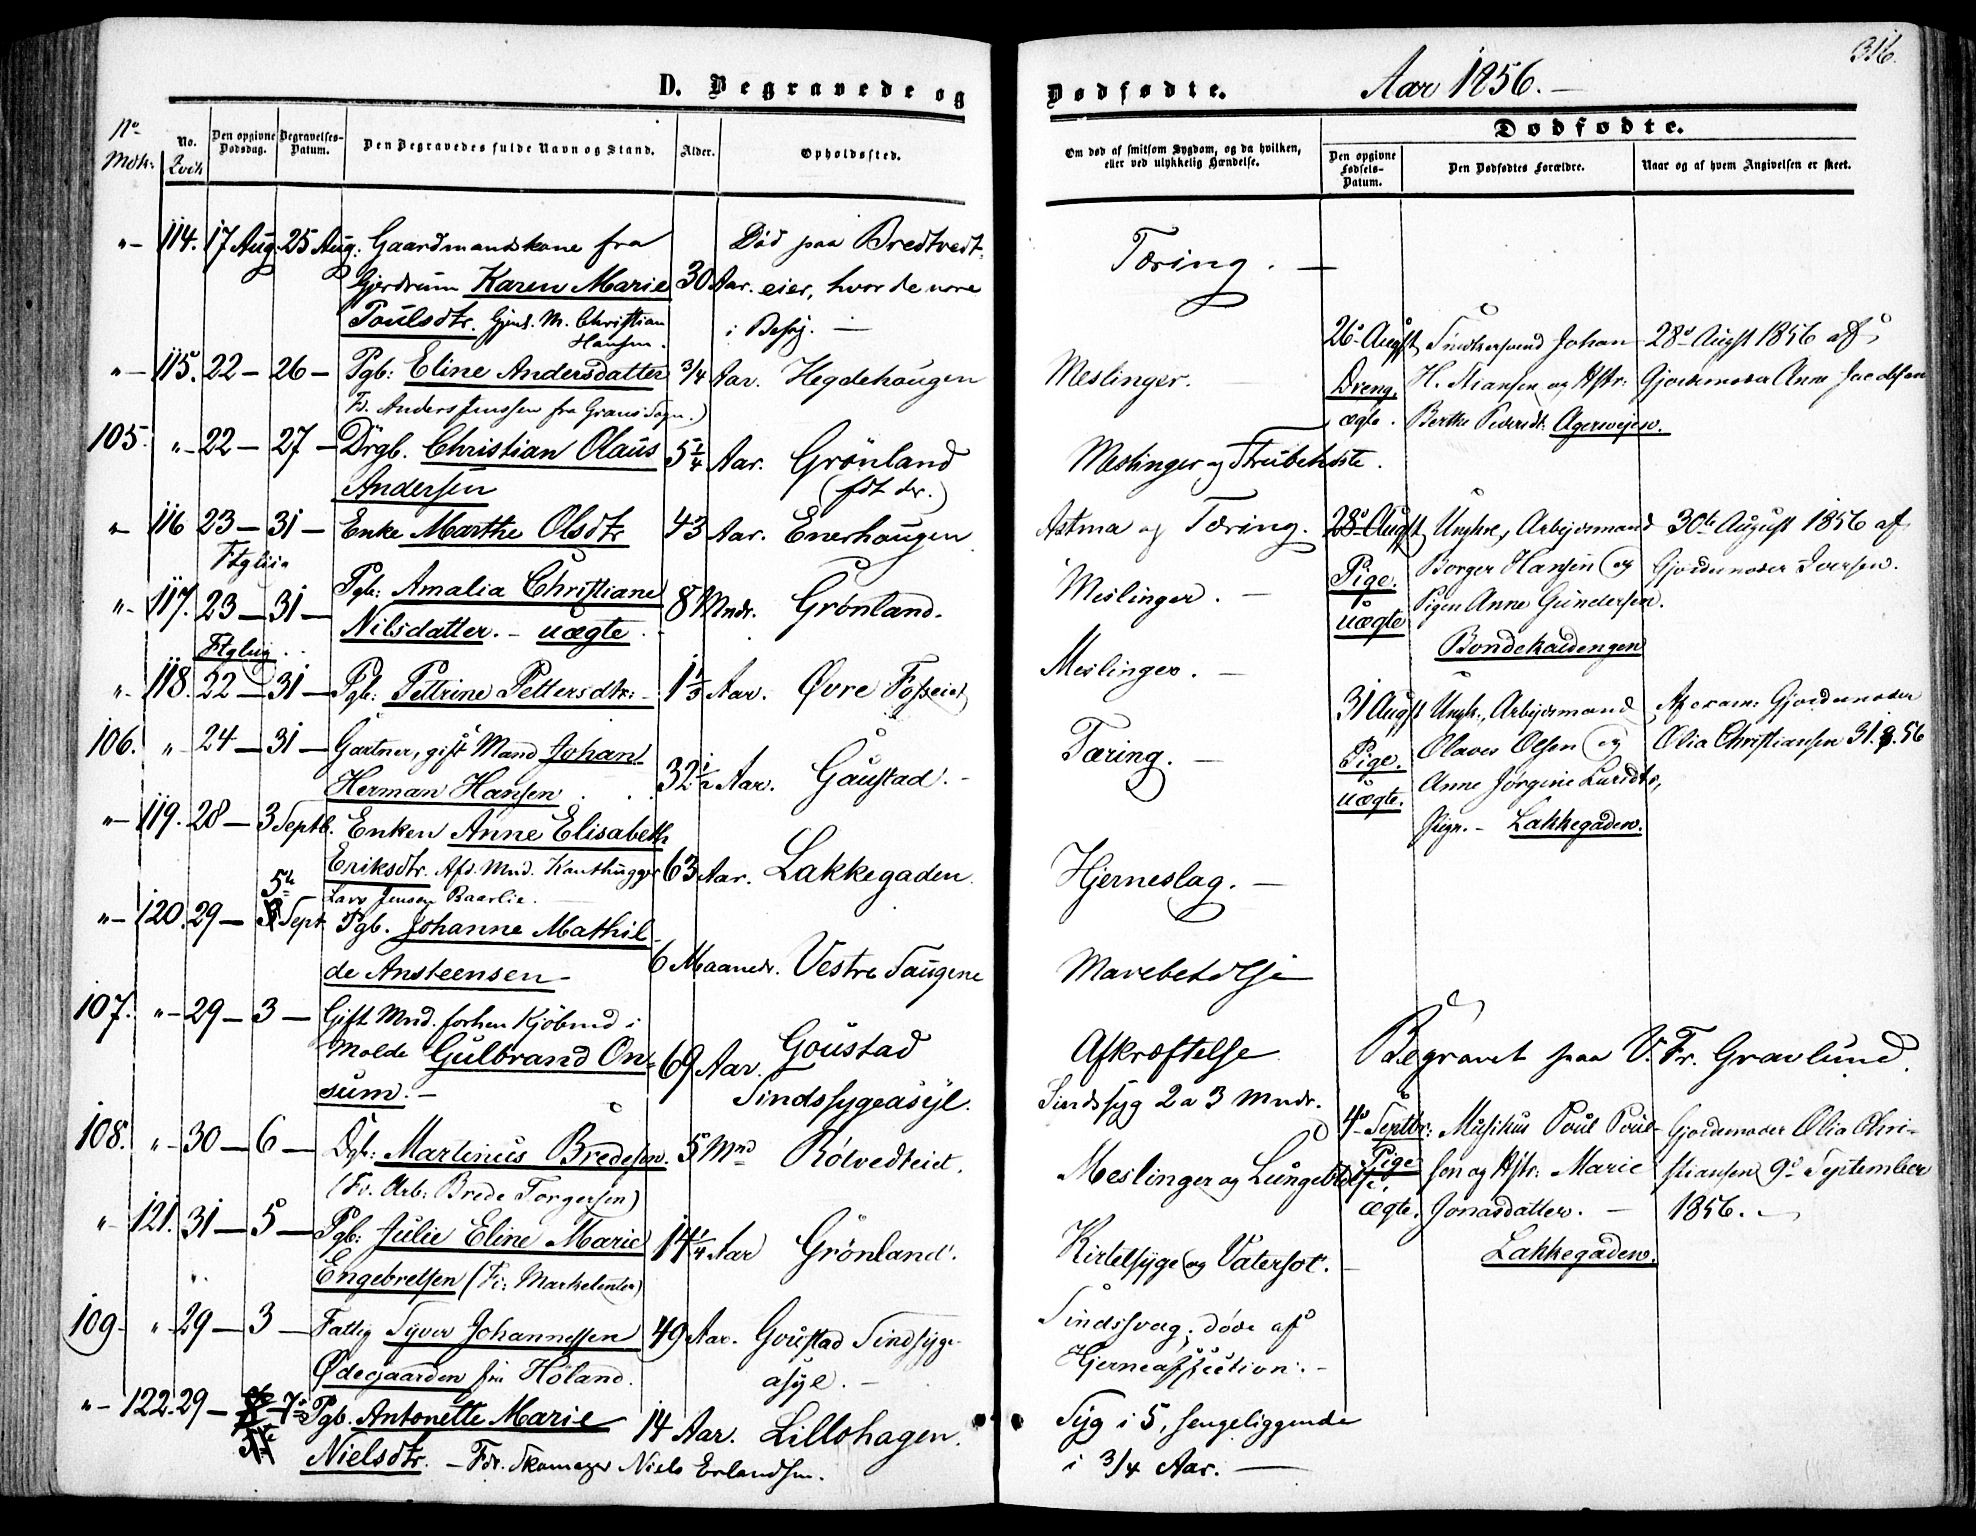 316.
D. Begravede og
Dødfødte. Aar 1856. —
No Mdk.
No. Qvik
Den opgivne Dødsdag.
Begravelses-Datum.
Den Begravedes fulde Navn og Stand.
Alder.
Opholdssted.
Om død af smitsom Sygdom, og da hvilken, eller ved ulykkelig Hændelse.
Dødfødte.
Den opgivne Fødsels-Datum.
Den Dødfødtes Forældre.
Naar og af hvem Angivelsen er skeet.
"— 114. 17 Aug. 25 Aug: Gaardmandskone fra Død paa Bredtvedt-
Gjerdrum Karen Marie 30 Aar. eier, hvor de vare
Poulsdtr. M. Christian i Besøg. —
Hansen.
Tæring. —
"— 115. 22 — 26 — Pgb: Eline Andersdatter 3/4 Aar. Hegdehaugen
F. Anders Jenssen fra Grans Sogn.)
Meslinger.
105. "— 22 — 27 — Drgb. Christian Olaus 5 1/4 Aar. Grønland
Andersen (fdt der.)
Meslinger og Strubehoste.
" 116 23 — 31 — Enke Marthe Olsdtr 43 Aar. Enerhaugen
Astma og Tæring.
"— 117. 23 — 31 — Pgb: Amalia Christiane 8 Mndr. Grønland.
Nilsdatter. — uægte.
Meslinger. —
"— 118. 22 — 31 — Pgb: Pettrine Pettersdtr: 1 1/3 Aar. Øvre Fosseiet
Meslinger. —
106. " 24 — 31 — Gartner, gift Mand Johan
Herman Hansen 32 1/2 Aar. Gaustad. —
Tæring. —
"— 119. 28 — 3 Septb. Enken Anne Elisabeth
Eriksdtr. Afd. Mnd. Kanthugger 63 Aar. Lakkegaden.
Lars Jensen Baarlie.
Hjerneslag. —
"— 120. 29 — 5te Sept. Pgb. Johanne Mathil-
de Ansteensen — 6 Maaneder. Vestre Saugene
Mavebetdlse
107. "— 29 — 3 — Gift Mnd. forhen Kjøbmd i
Molde Gulbrand On- 69 Aar. Goustad
sum. — Sindssygeasyl.
Afkræftelse
Sindssyg 2 a 3 Mndr.
108. "— 30 — 6 — Dgb: Martinius Bredesen. 5 Mnd Rølvedteiet.
(F. Arb: Brede Torgersen)
Meslinger og Lungebtdlse
"— 121. 31 — 5 — Pgb: Julie Eline Marie 14 1/4 Aar Grønland.
Engebretsen (F: Markelenter)
Kirtelsyge og Vatersot. —
109 "— 29 — 3 — Fattig Syver Johannessen 49 Aar. Goustad Sindsyge-
Ødegaarden fra Høland. asyl. —
Sindssvag; døde af
Hjerneaffection. —
"— 122. 29 — 7de Pgb. Antonette Marie 14 Aar. Lillohagen.
Nielsdtr. — Fdr. Skomager Niels Erlandsen.
Syg i 5, sengeliggende
i 3/4 Aar. —
26 August Johan 28 Augst 1856 af
Dreng. H. Stiansen og Hstr: Gjordemoder Anne Jacobsen
ægte. Berthe Pedersdt. Agersveien.
28 Augst Ungkr, Arbejdsmand 30te August 1856 af
Pige. Borger Hansen og Gjordemoder Iversen.
uægte Pigen Anne Gundersen.
Bondekaldengen
31 Augst Ungk., Arbejdsmand Af exam: Gjordemoder
Pige. Olaves Olsen og Ølia Christiansen 31.8.56
uægte. Anne Jørgine Lursdtr,
Pige. — Lakkegaden.
Begravet paa V. Fr. Gravlund.
4 Septbr: Musikus Poul Poul- Gjordemoder Ølia Chri-
Pige sen og Hstr: Marie stiansen 9 September
ægte. Jonasdatter. — 1856. —
Lakkegaden.